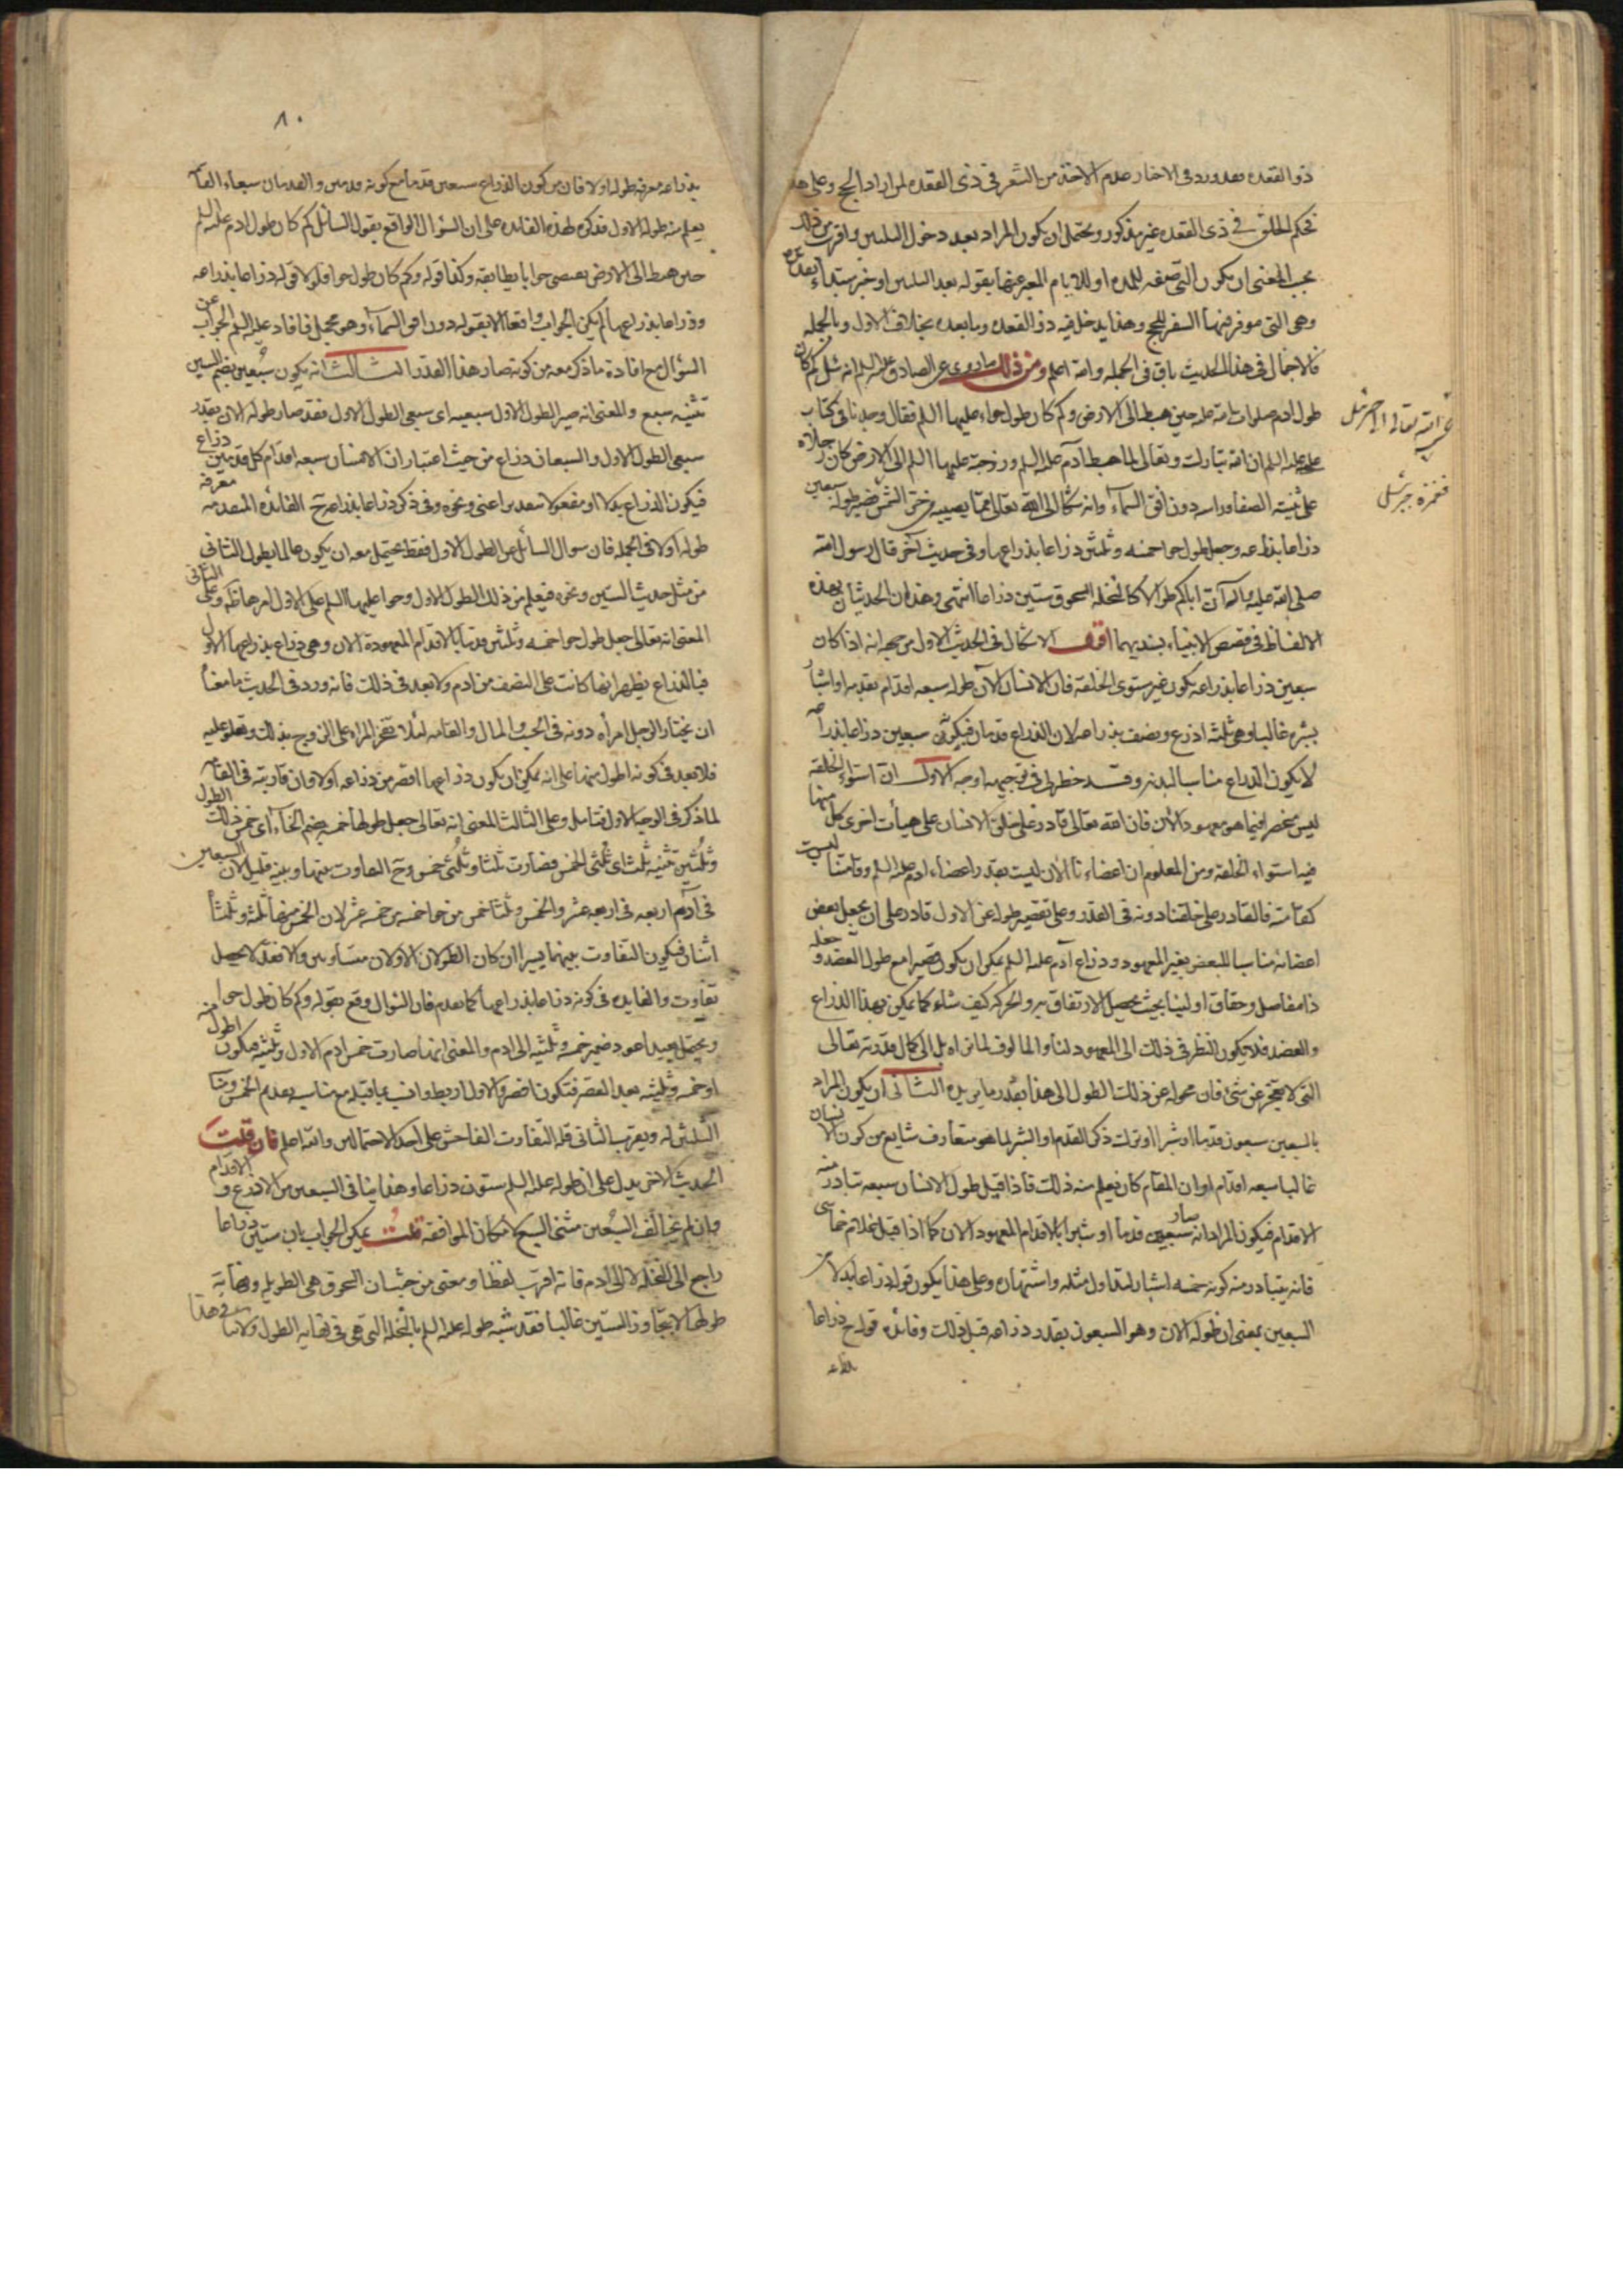 ذو القعده فقد ورد فى الاخبار عدم الاخذ من الشعر فى ذى القعده لمن اراد الحج وعلى هذا
فحكم الحلق فى ذى القعده غير مذكور ويحتمل ان يكون المراد بعد دخول الثلثين واقرب من ذلك
بحسب المعنى ان يكون التى صفه للمده او للايام المعبر عنها بقوله بعد الثلثين او خبر مبتداء
وهى التى موفر فيها السفر للحج وهذا يدخل فيه ذو القعده وما بعده بخلاف الاول وبالجمله
فالاجمال فى هذا الحديث باق فى الجمله والله اعلم ومن ذلك ما روى عن الصادق عليه السلم انه سئل كم كان
طول ادم صلوات الله عليه حين هبط الى الارض وكم كان طول حواء عليهما السلم فقال وجدنا فى كتاب
على عليه السلم ان الله تبارك وتعالى لما هبط آدم عليه السلم وزوجته عليهما السلم الى الارض كان رجلاه
على ثنية الصفا وراسه دون افق السماء وانه شكا الى الله تعالى مما يصيبه من حر الشمس فصير طوله سبعين
ذراعا بذراعه وجعل طول حوا خمسه وثلثين ذراعا بذراعها وفى حديث آخر قال رسول الله
صلى الله عليه وآله ان اباكم طوالا كالنخله السحوق ستين ذراعا انتهى وهذان الحديثان بهذه
الالفاظ فى قصص الانبياء بسنديهما اقول الاشكال فى الحديث الاول من جهه انه اذا كان
سبعين ذراعا بذراعه يكون غير مستوى الخلقه فان الانسان الآن طوله سبعه اقدام بقدمه او اشبار
بشبره غالبا وهى ثلثه اذرع ونصف بذراعه لان الذراع قدمان فيكون سبعين ذراعا بذراعه
لا يكون الذراع مناسبا لبدنه وقد خطر لى فى توجيهه اوجه الاول ان استواء الخلقه
ليس منحصرا فيما هو معهود الان فان الله تعالى قادر على خلق الانسان على هيأت اخرى كل منها
فيه استواء الخلقه ومن المعلوم ان اعضاءنا الان ليست بقدر اعضاء ادم عليه السلم وقامتنا ليست
كقامته فالقادر على خلقنا دونه فى القدر وعلى تقصير طوله عن الاول قادر على ان يجعل بعض
اعضائه مناسبا للبعض بغير المعهود وذراع آدم عليه السلم يمكن ان يكون قصيرا مع طول العضد وجعله
ذا مفاصل وحقاق او لينا بحيث يحصل الارتفاق به والحركه كيف شاء كما يمكن بهذا الذراع
والعضد فلا يكون النظر فى ذلك الى المعهود لنا والمالوف لما نراه بل الى كمال قدرته تعالى
التى لا تعجز عن شئ فان محوله عن ذلك الطول الى هذا بقدر ما يريده الثانى ان يكون المراد
بالسبعين سبعون قدما او شبرا او ترك ذكر القدم او الشبر لما هو متعارف شايع من كون الانسان
غالبا سبعه اقدام او ان المقام كان يعلم منه ذلك فاذا قيل طول الانسان سبعه تبادر منه
الاقدام فيكون المراد انه صار سبعين قدما او شبرا بالاقدام المعهود الان كما اذا قيل غلام خماسى
فانه يتبادر منه كونه خمسه اشبار لتداول مثله واشتهاره وعلى هذا يكون قوله ذراعا بدلا من
السبعين بمعنى ان طوله الان وهو السبعون بقدر ذراعه قبل ذلك وفائده قوله ح ذراعا
بذراعه
عنى الله تعالى الى جبرئيل
فغمزه جبرئيل
٨٠
بذراعه معرفه طوله اولا فان من كون الذراع سبعين قدما مع كونه قدمين والقدمان سبعاء القامه
يعلم منه طوله الاول فذكره لهذه الفائده على ان السؤال الواقع بقول السائل كم كان طول ادم عليه السلم
حين هبط الى الارض يقتضى جوابا يطابقه وكذا قوله وكم كان طول حوا فلولا قوله ذراعا بذراعه
وذراعا بذراعها لم يكن الجواب واقعا الا بقوله دون افق السماء وهو مجمل فافاد عليه السلم الجواب عن
السؤال مع افادة ما ذكر معه من كونه صار هذا القدر الثالث انه يكون سُبعين بضم السين
تثنيه سبع والمعنى انه صير الطول الاول سبعيه اى سبعى الطول الاول فقد صار طوله الان بقدر
سبعى الطول الاول والسبعان ذراع من حيث اعتبار ان الانسان سبعه اقدام كل قدمين ذراع
فيكون الذراع بدلا او مفعولا بتقدير اعنى ونحوه وفى ذكر ذراعا بذراعه ح الفائده المتقدمه معرفة
طوله اولا فى الجمله فان سوال السائل عن الطول الاول فقط يحتمل معه ان يكون عالما بطول الثانى
من مثل حديث الستين ونحوه فيعلم من ذلك الطول الاول وحوا عليهما السلم على الاول امرها ظ وعلى الثانى
المعنى انه تعالى جعل طول حوا خمسه وثلثين قدما بالاقدام المعهودة الان وهى ذراع بذراعها الاول
فبالذراع يظهر انها كانت على النصف من ادم ولا بعد فى ذلك فانه ورد فى الحديث ما معناه
ان يختار الرجل امرأه دونه فى الحسب والمال والقامه لئلا تفتخر المراه على الزوج بذلك وتعلو عليه
فلا بعد فى كونه اطول منها على انه يمكن ان يكون ذراعها اقصر من ذراعه اولا وان قاربته فى القامه
لما ذكر فى الوجه الاول فتأمل وعلى الثالث المعنى انه تعالى جعل طولها خمسه بضم الخاء اى خمس ذلك الطول
وثُلثين تثنيه ثلث اى ثلثى الخمس فصارت ثلثا وثُلثى خمس وح التفاوت بينهما وبينه قليل لان السبعين
فى آدم اربعه فى اربعه عشر والخمس وثلثا خمس من حوا خمسه من خمسه عشر لان الخمس منها ثلثه وثلثاه
اثنان فيكون التفاوت بينهما يسيرا ان كان الطولان الاولان متساويين والا فقد لا يحصل
تفاوت والفايده فى كونه ذراعا بذراعها كما تقدم فان السؤال وقع بقوله وكم كان طول حوا
ويحتمل بعيدا عود ضمير خمسه وثلثيه الى ادم والمعنى انها صارت خمس ادم الاول وثلثيه فتكون اطول منه
او خمسه وثلثيه بعد القصر فتكون اقصر والاول اربط وانسب بما قبله مع مناسبه تقدم الخمس ومنا
الثلثين له ويقرب الثانى قله التفاوت الفاحش على احد الاحتمالين والله اعلم فان قلت
الحديث الاخر يدل على ان طوله عليه السلم ستون ذراعا وهذا ينافى السبعين من الاذرع والاقدام
وان لم يخالف السُبعين مثنى السبع لامكان الموافقه قلت يمكن الجواب بان ستين ذراعا
راجع الى النخله لا الى ادم فانه اقرب لفظا ومعنى من حيث ان السحوق هى الطويله ونهاية
طولها لا يتجاوز الستين غالبا فقد شبه طوله عليه السلم بالنخله التى هى فى نهايه الطول ولا ينافى هذا